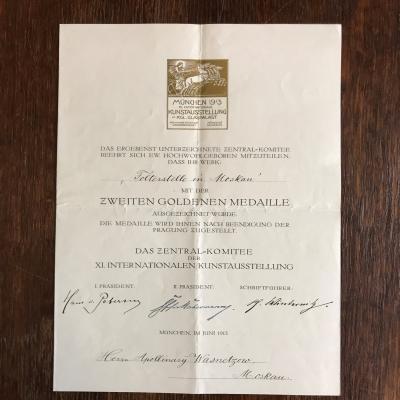 MÜNCHEN 1913
XI. INTERNATIONALE
KUNSTAUSSTELLUNG
IM KGL. GLASPALAST
DAS ERGEBENST UNTERZEICHNETE ZENTRAL-KOMITEE
BEEHRT SICH EW. HOCHWOHLGEBOREN MITZUTEILEN,
DASS IHR WERK:
„Folterstelle in Moskau“
MIT DER
ZWEITEN GOLDENEN MEDAILLE
AUSGEZEICHNET WURDE.
DIE MEDAILLE WIRD IHNEN NACH BEENDIGUNG DER
PRÄGUNG ZUGESTELLT.
DAS ZENTRAL-KOMITEE
DER
XI. INTERNATIONALEN KUNSTAUSSTELLUNG
I. PRÄSIDENT: II. PRÄSIDENT: SCHRIFTFÜHRER:
Hans v. Petersen
MÜNCHEN, IM JUNI 1913.
Herrn Apollinary Wasnetzow
Moskau.